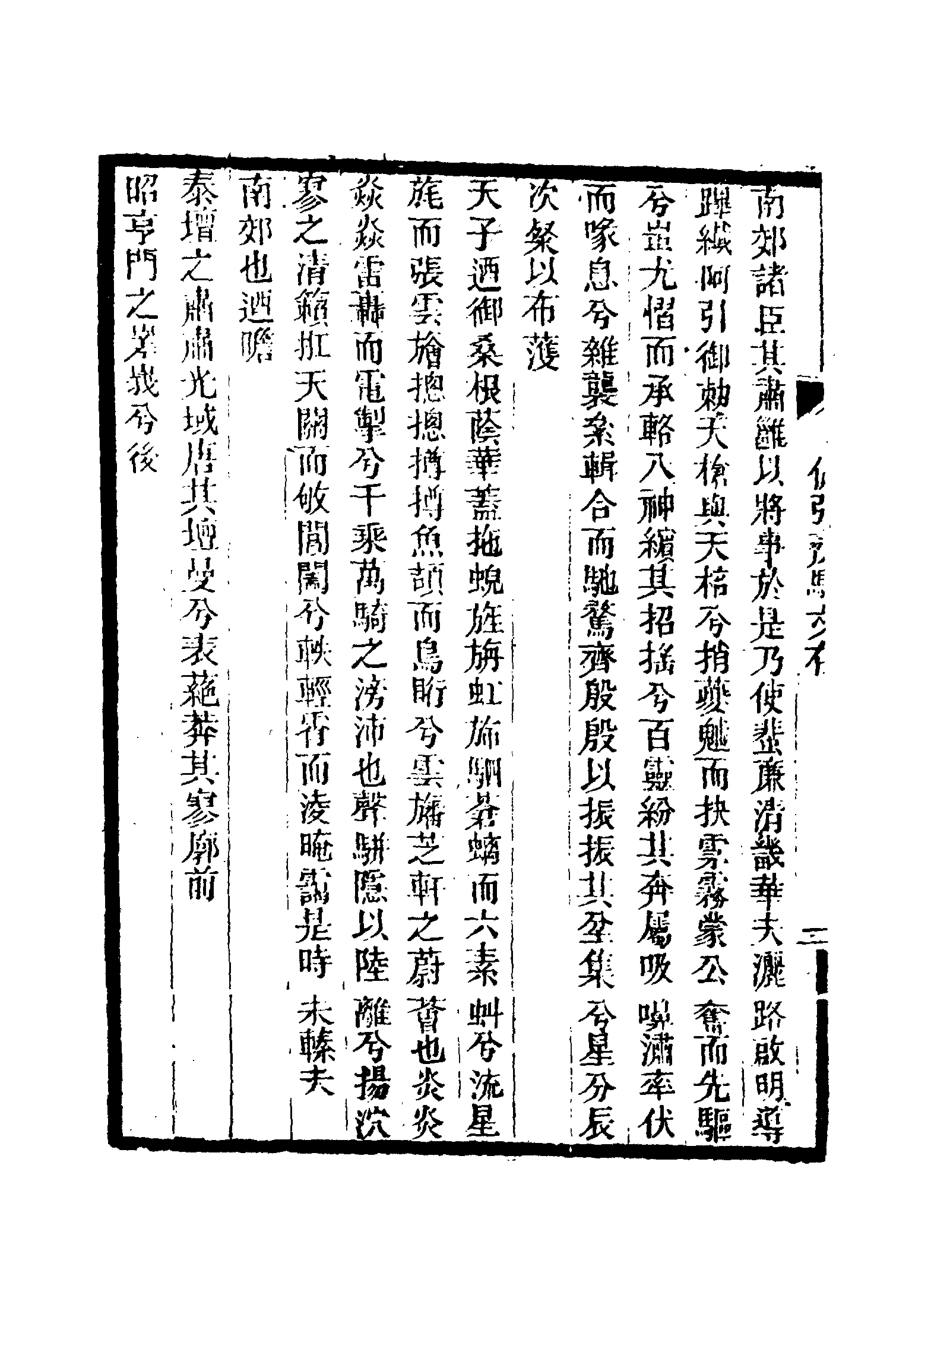 南郊諸臣其肅雝以將事於是乃使蜚廉清畿華夫灑路啟明導
蹕纖阿引御勅天槍與天棓兮捎夔魖而抉雰霧蒙公奮而先驅
兮蚩尤慴而承輅八神繽其招搖兮百靈紛其奔屬吸嚊潚率伏
而喙息兮雜襲桼輯合而馳騖齊殷殷以振振其坌集兮星分辰
次粲以布濩
天子迺御桑根蔭華蓋拖蜺旌旃虹旆駟蒼螭而六素虯兮流星
旄而張雲旝摠摠撙撙魚頡而鳥䀪兮雲旛芝軒之蔚薈也炎炎
焱焱雷轟而電掣兮千乘萬騎之滂沛也聲駢隱以陸離兮揚泬
寥之清籟扤天關而敂閶闔兮軼輕霄而淩晻靄是時未轃夫
南郊也迺瞻
泰壇之肅肅光域唐其壇曼兮表蕝莽其寥廓前
昭亨門之嶪峩兮後
二